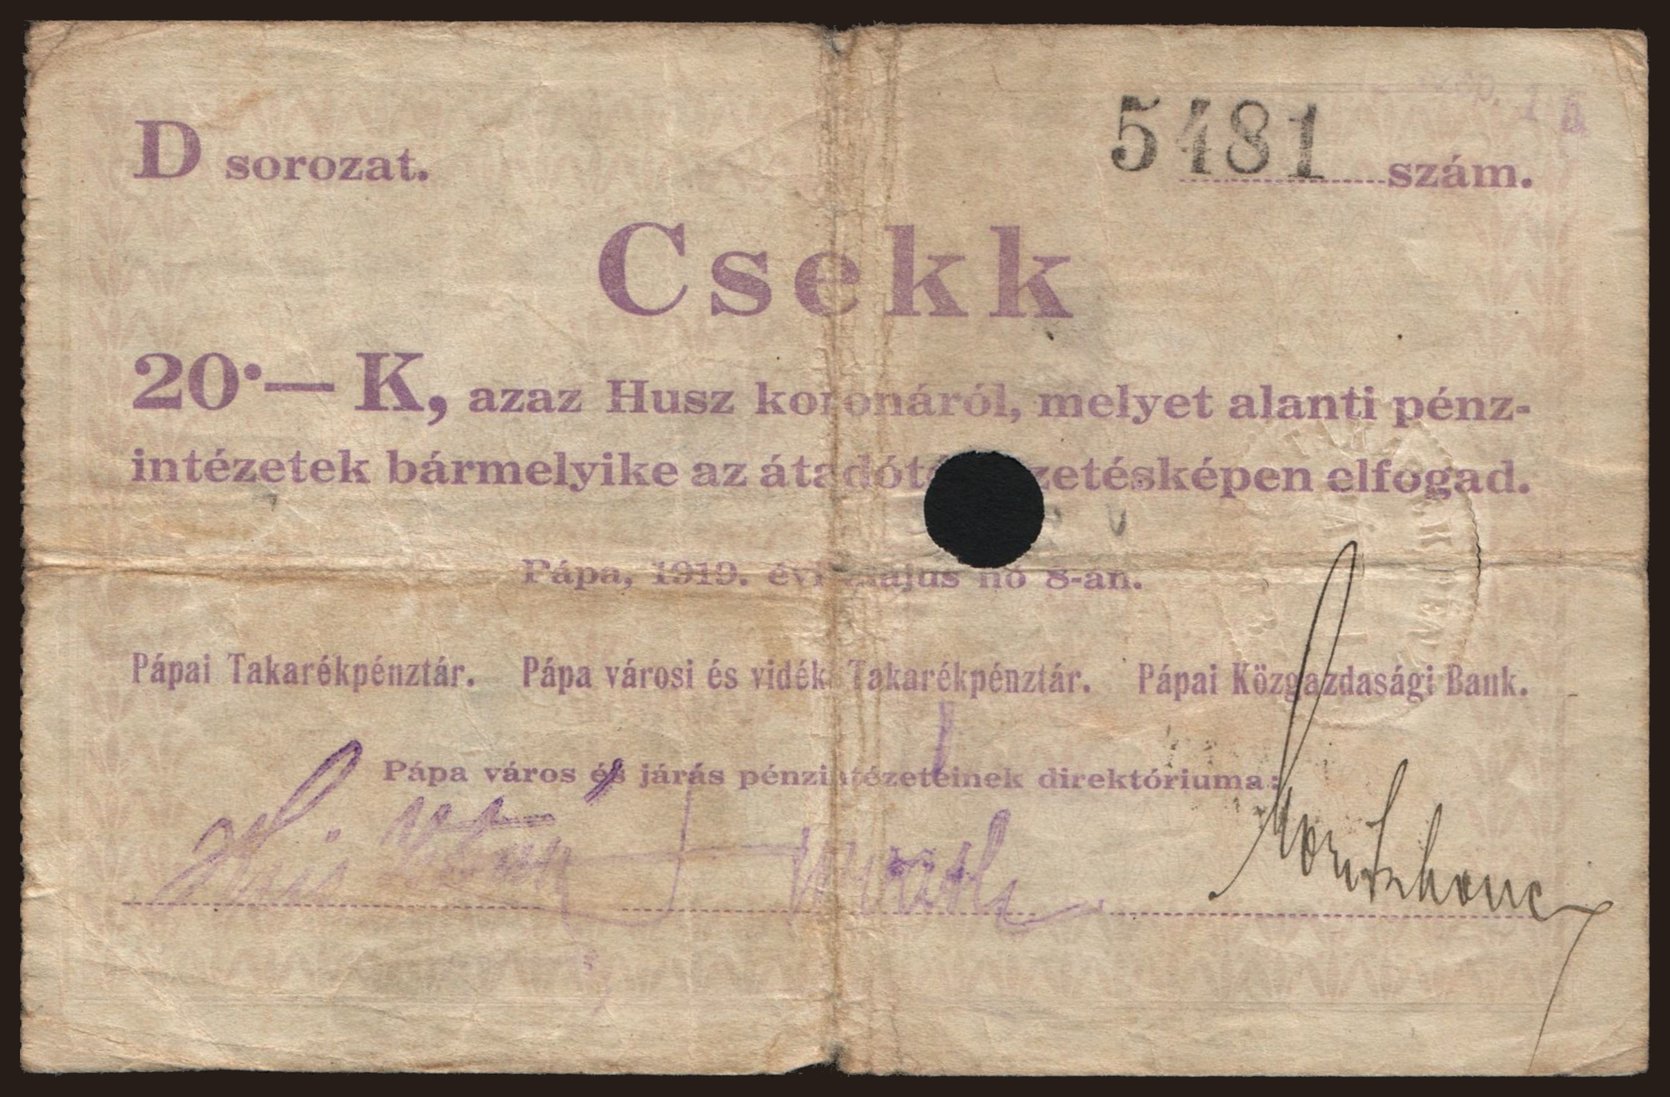 D sorozat. 5481 szám.
Csekk
20·— K, azaz Husz koronáról, melyet alanti pénz-
intézetek bármelyike az elfogad.
Pápa, 1919. évi május hó 8-án.
Pápai Takarékpénztár. Pápa városi és vidéki Takarékpénztár. Pápai Közgazdasági Bank.
Pápa város és járás pénzintézeteinek direktóriuma: